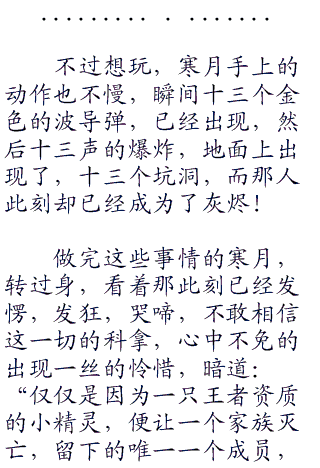 ......... . .......
不过想玩，寒月手上的
动作也不慢，瞬间十三个金
色的波导弹，已经出现，然
后十三声的爆炸，地面上出
现了，十三个坑洞，而那人
此刻却已经成为了灰烬！
做完这些事情的寒月，
转过身，看着那此刻已经发
愣，发狂，哭啼，不敢相信
这一切的科拿，心中不免的
出现一丝的怜惜，暗道：
“仅仅是因为一只王者资质
的小精灵，便让一个家族灭
亡，留下的唯一一个成员，